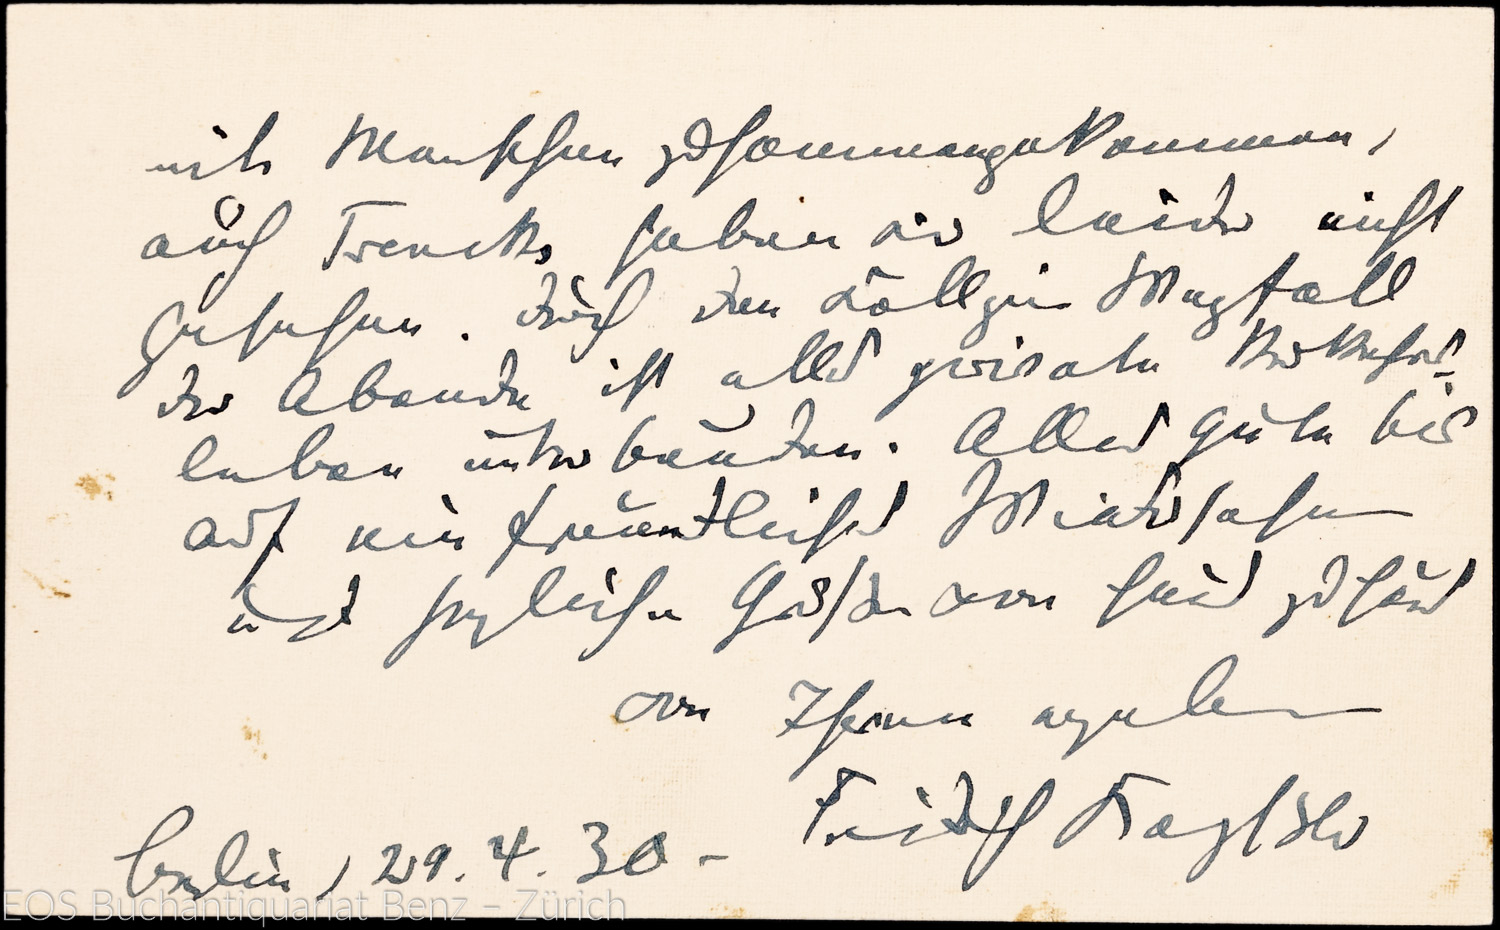 mit Menschen zusammengekommen,
auch Trencks haben wir leider nicht
gesehen. Durch den völligen Wegfall
der Abende ist alles private Verkehrs-
leben unterbunden. Alles Gute bis
auf ein freundliches Wiedersehen
und herzliche Grüße von Haus zu Haus
von Ihrem ergebenen
Berlin, 29.4.30 - Friedrich
EOS Buchantiquariat Benz – Zürich